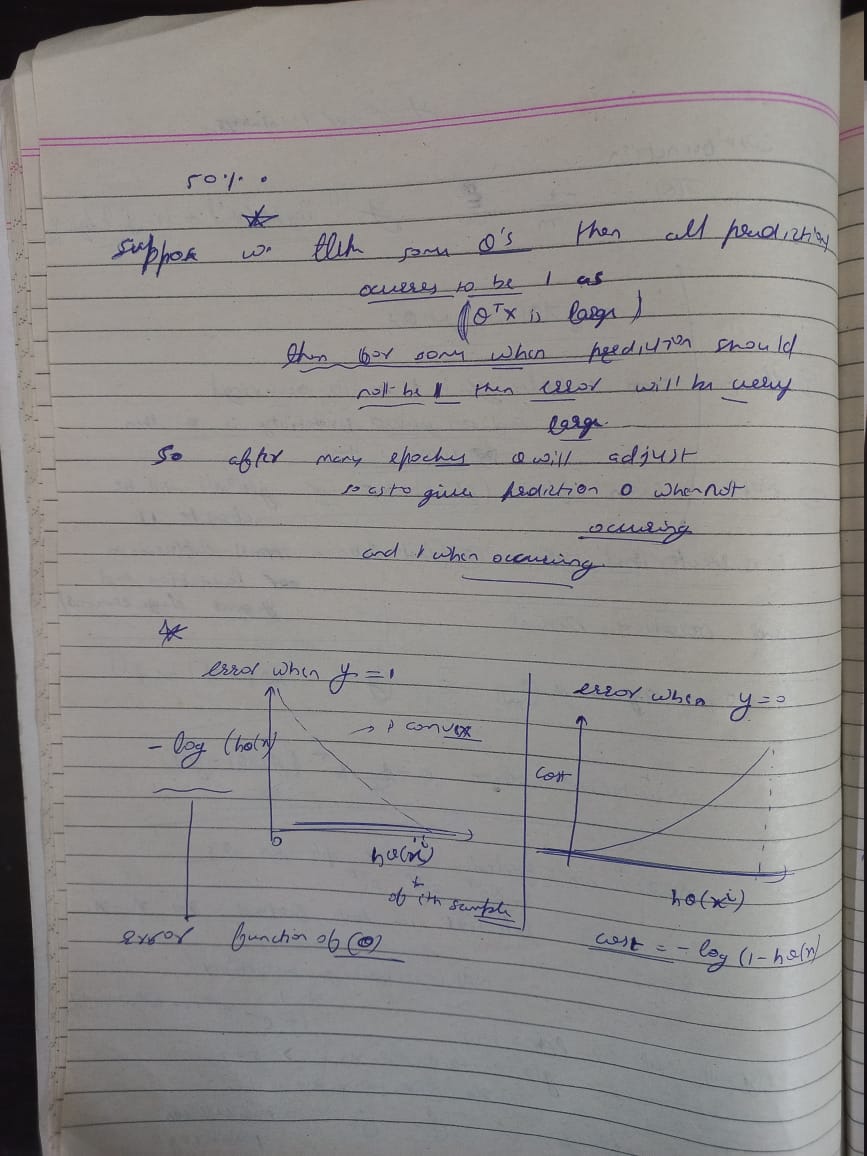 50%.
suppose we some θ's then all prediction
occures to be 1 as
(θᵀx is large)
then for some when prediction should
not be 1 then error will be very
large.
So after many epochs θ will adjust
so as to give prediction 0 when not
occuring
and 1 when occuring.
error when y = 1
- log (hθ(x)
→ convex
0
hθ(xⁱ)
of ith sample
error function of (θ)
error when y = 0
cost
hθ(xⁱ)
cost = - log (1 - hθ(x)